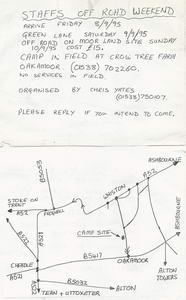 STAFFS OFF ROAD WEEKEND
ARRIVE FRIDAY 8/9/95
GREEN LANE SATURDAY 9/9/95
OFF ROAD ON MOOR LAND SITE SUNDAY
10/9/95 COST £15.
CAMP IN FIELD AT CROW TREE FARM
OAKAMOOR. (01538) 702260.
NO SERVICES IN FIELD.
ORGANISED BY CHRIS YATES
(01538) 750107.
PLEASE REPLY IF YOU INTEND TO COME.
ASHBOURNE
A52
B5053
WHISTON
STOKE ON
TRENT
A52
FROGHALL
ASHBOURNE
B522
A521
CAMP SITE
CHEADLE
B5417
OAKAMOOR
A521
ALTON
TOWERS
B5032
ALTON
TEAN + UTTOXETER